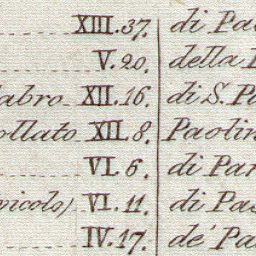 XIII. 37. di Pa
V. 20. della
labro XII. 16. di S. P
ollato XII. 8. Paolin
VI. 6. di Par
vicolo) VI. 11. di Pas
IV. 17. de' Pa